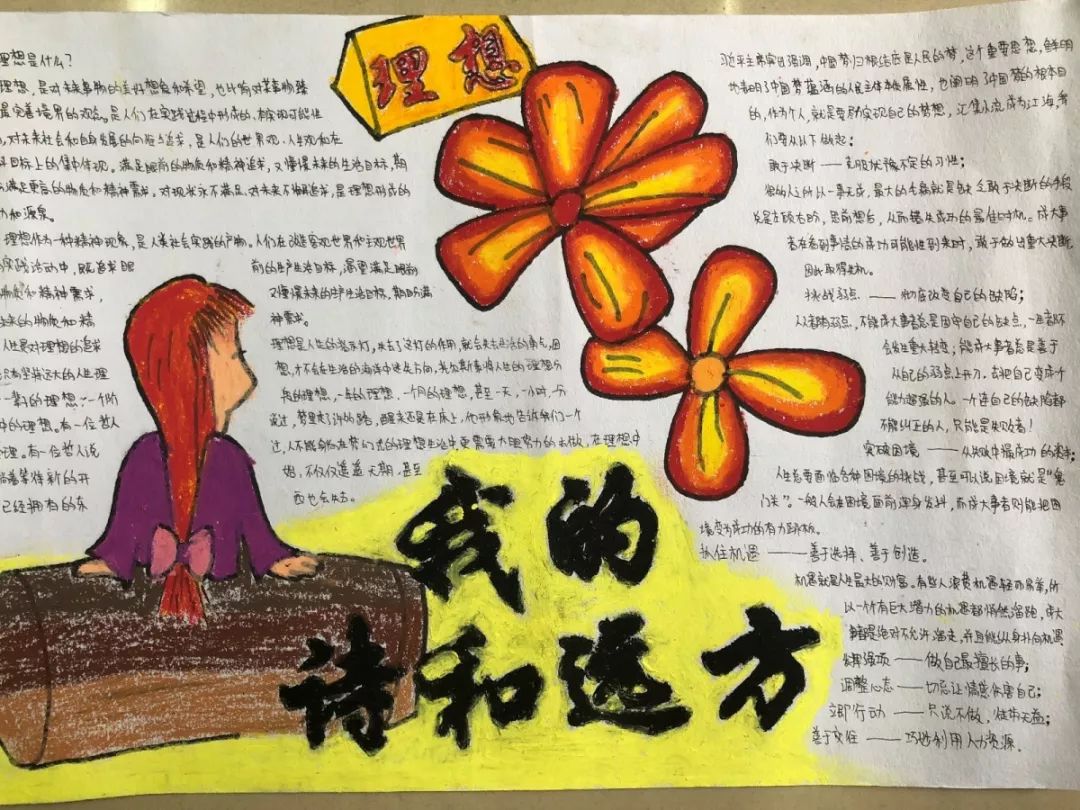 理想
理想是什么？
理想，是对未来事物的美好想象和希望，也比喻对某事物臻
最完善境界的观念。是人们在实践过程中形成的、有实现可能性
，对未来社会和自身发展的向往与追求，是人们的世界观、人生观和在
目标上的集中体现。满足眼前的物质和精神追求，又憧憬未来的生活目标，期
满足更高的物质和精神需求。对现状永不满足、对未来不懈追求，是理想形成的
力和源泉。
理想作为一种精神现象，是人类社会实践的产物。人们在改造客观世界和主观世界
实践活动中，既追求眼
前的生产生活目标，渴望满足眼前
物质和精神需求，
又憧憬未来的生产生活目标，期盼满
未来的物质和精
神需求。
人生是对理想的追求
理想是人生的指示灯，失去了这灯的作用，就会失去生活的勇气，因
只有坚持远大的人生理
想，才不会在生活的海洋中迷失方向，
将人生的理想分
一辈的理想，一个阶
为的理想，一年的理想，一个月的理想，甚至一天，一小时，一分
中的理想。有一位哲人
说过，梦里走了许多路，醒来还是在床上，他形象地告诉我们一个
道理。有一位哲人说
过，人不能躺在梦幻式的理想生活中
更需要大胆努力的去做，在理想中
等待新的开
不仅仅遥遥无期，甚至
已经拥有的东
西也会失去。
习近平主席曾强调，中国梦归根结底是人民的梦，这个重要思想，鲜明
地表明了中国梦蕴涵的人民主体和属性，也阐明了中国梦的根本目
的，作为个人，就是要努力实现自己的梦想，汇集小流成为江海，我
们要从以下做起：
敢于决断——克服犹豫不定的习性；
很多人之所以一事无成，最大的毛病就是缺乏敢于决断的手段
总是左顾右盼，思前想后，从而错失成功的最佳时机。成大事
者在看到事情的成功可能性到来时，敢于做出重大决断，
因此取得先机。
挑战弱点——彻底改变自己的缺陷；
人人都有弱点，不能成大事者总是固守自己的缺点，一生都不
会发生重大转变；能成大事者总是善于
从自己的弱点上开刀，去把自己变成个
能力超强的人。一个连自己的缺陷都
不能纠正的人，只能是失败者！
突破困境——从失败中撮成功的资本；
人生总要面临各种困境的挑战，甚至可以说困境就是“鬼
门关”。一般人会在困境面前浑身发抖，而成大事者则能把困
境变为成功的有力跳板。
抓住机遇——善于选择、善于创造。
机遇就是人生最大的财富。有些人浪费机遇轻而易举，所
以一个个有巨大潜力的机遇都悄然溜跑，成大
事者是绝对不允许溜走，并且能纵身扑向机遇
发挥强项——做自己最擅长的事；
调整心态——切忌让情绪伤害自己；
立即行动——只说不做，徒劳无益；
善于交往——巧妙利用人力资源。
我的
诗和远方